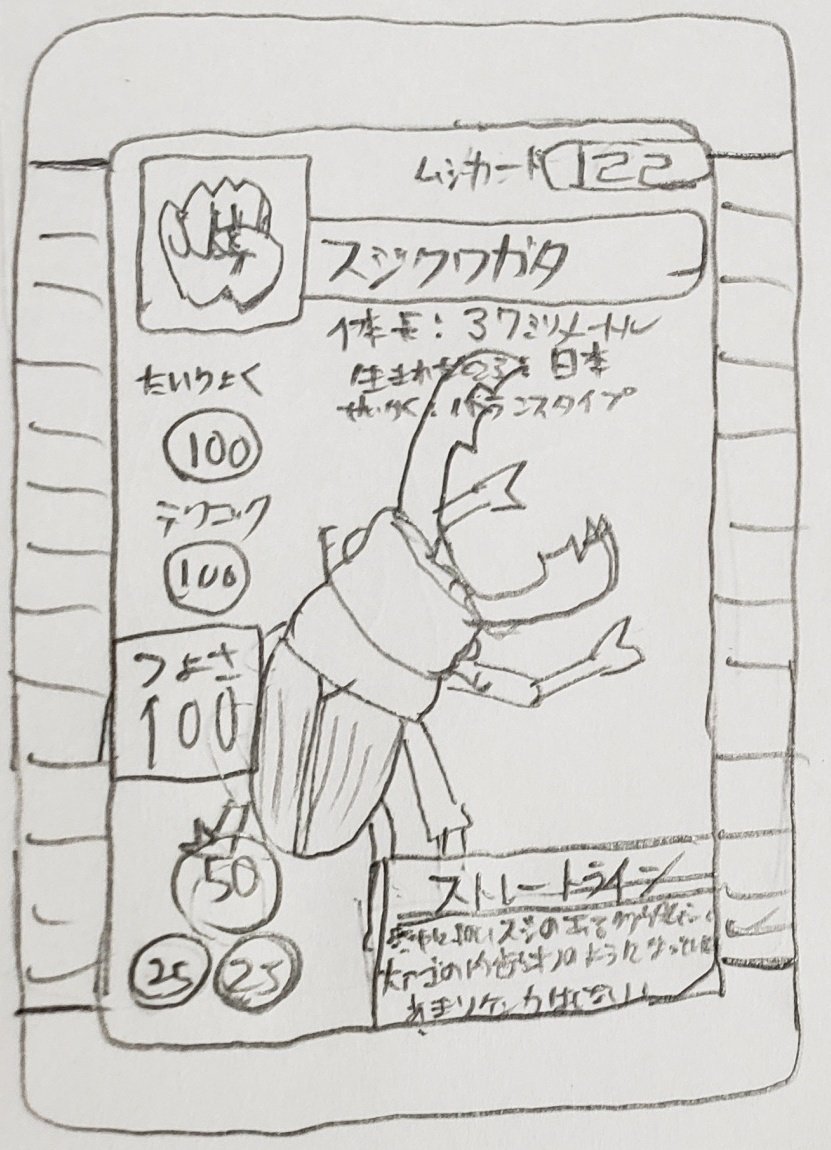 ムシカード 122
スジクワガタ
体長：37ミリメートル
生まれたところ：日本
せいかく：バランスタイプ
たいりょく
100
テクニック
100
つよさ
100
50
25 25
ストレートライン
スジの
大アゴの
ようになっている
あまりケンカはしない